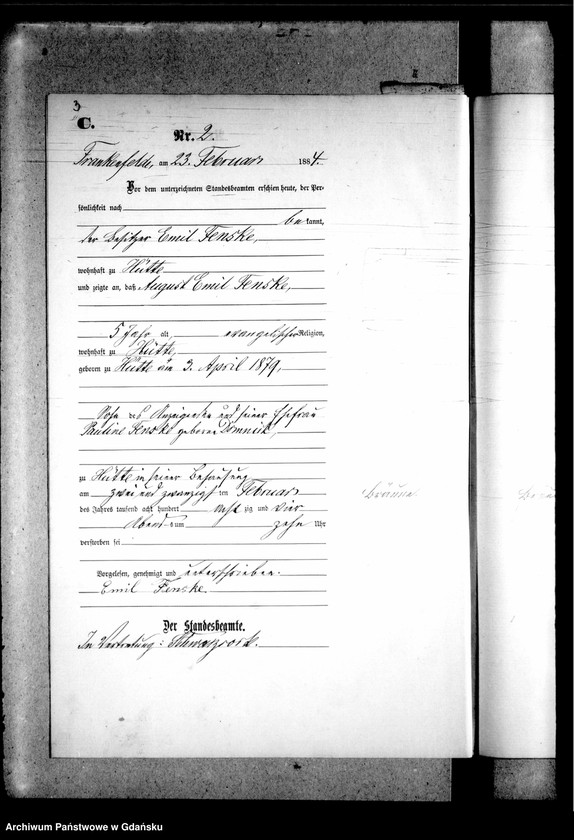 3
C.
Nr. 2.
Frankenfelde, am 23. Februar 1884.
Vor dem unterzeichneten Standesbeamten erschien heute, der Per-
sönlichkeit nach
bekannt,
der Besitzer Emil Fenske,
wohnhaft zu Hütte
und zeigte an, daß August Emil Fenske,
5 Jahr alt, evangelischer Religion,
wohnhaft zu Hütte,
geboren zu Hütte am 3. April 1879,
Sohn des Anzeigenden und seiner Ehefrau
Pauline Fenske geborene Domnick,
zu Hütte in seiner Behausung
am zwei und zwanzigsten Februar
des Jahres tausend acht hundert acht zig und vier
Abends um zehn Uhr
verstorben sei
Vorgelesen, genehmigt und unterschrieben.
Emil Fenske.
Der Standesbeamte.
In Vertretung:
Bräune
Archiwum Państwowe w Gdańsku